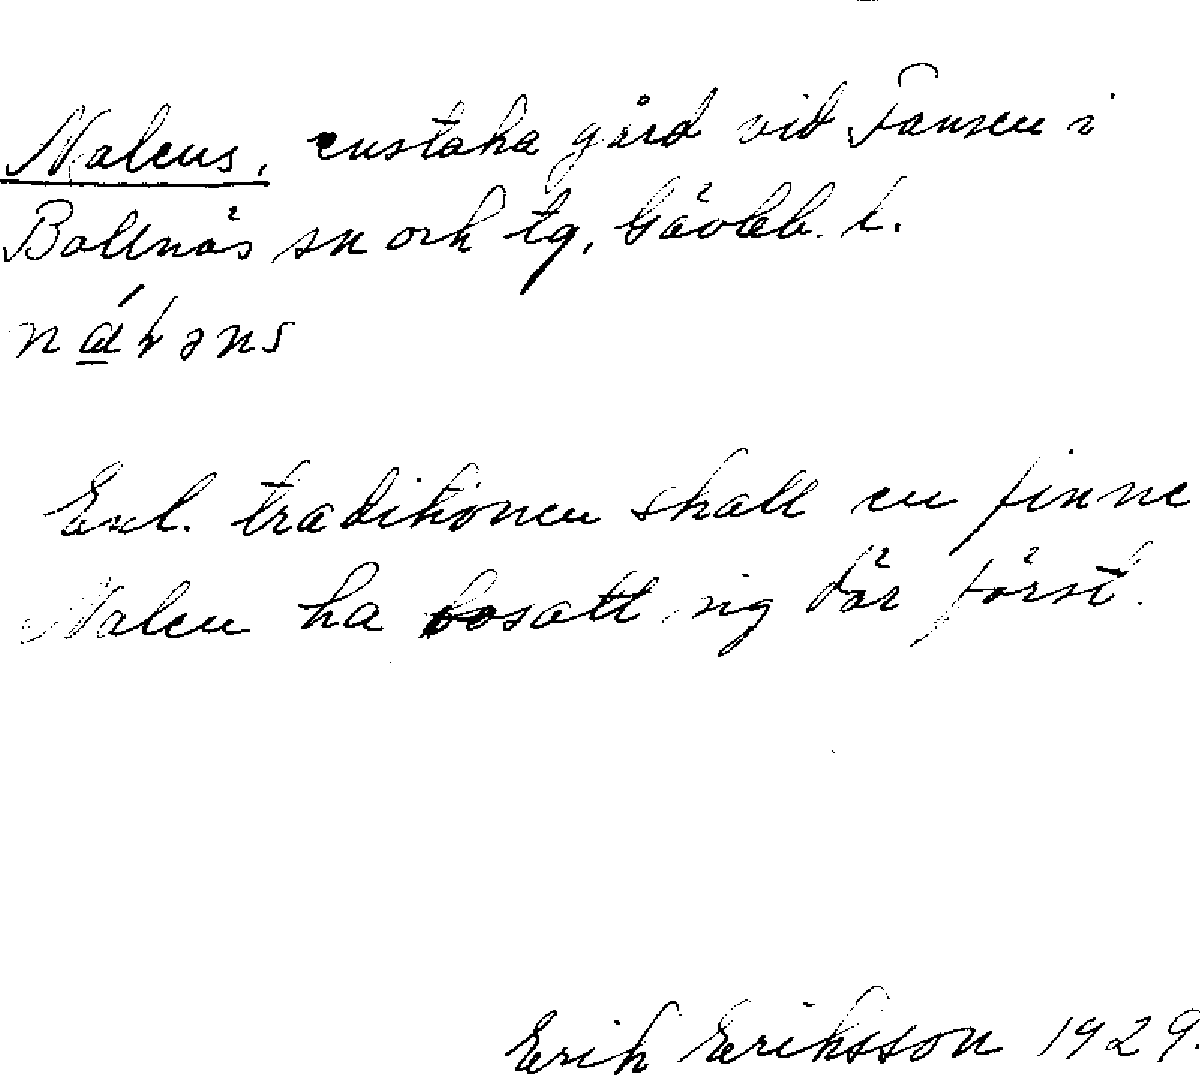 Nalens, enstaka gård vid Fansen i
Bollnäs sn och tg, Gävleb. l.
Enl. traditionen skall en finne
Nalen ha bosatt sig där först.
Erik Eriksson 1929.